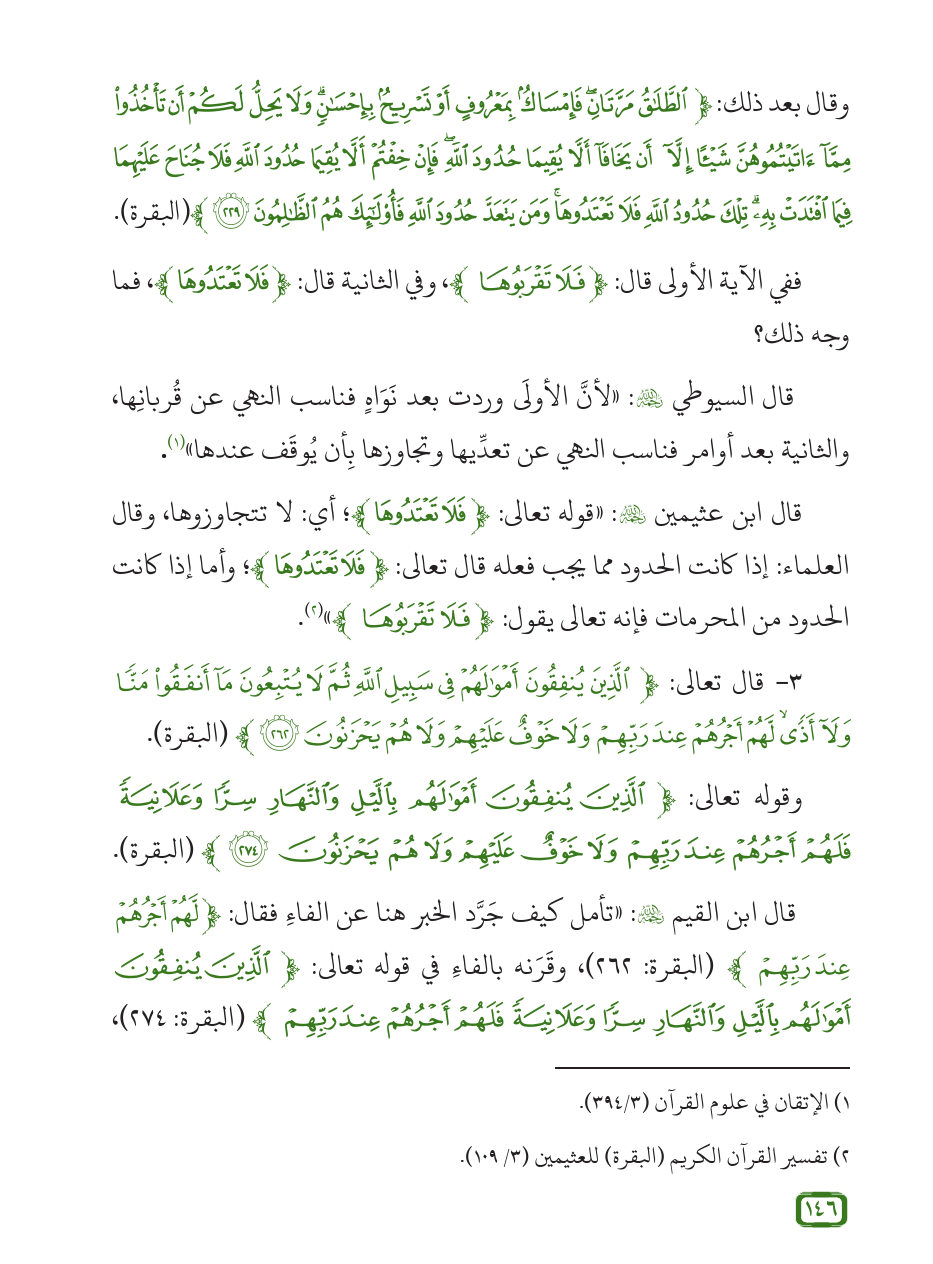 وقال بعد ذلك: ﴿ ٱلطَّلَٰقُ مَرَّتَانِۖ فَإِمْسَاكٌۢ بِمَعْرُوفٍ أَوْ تَسْرِيحٌۢ بِإِحْسَٰنٍۗ وَلَا يَحِلُّ لَكُمْ أَن تَأْخُذُوا۟
مِمَّآ ءَاتَيْتُمُوهُنَّ شَيْـًٔا إِلَّآ أَن يَخَافَآ أَلَّا يُقِيمَا حُدُودَ ٱللَّهِۖ فَإِنْ خِفْتُمْ أَلَّا يُقِيمَا حُدُودَ ٱللَّهِ فَلَا جُنَاحَ عَلَيْهِمَا
فِيمَا ٱفْتَدَتْ بِهِۦۗ تِلْكَ حُدُودُ ٱللَّهِ فَلَا تَعْتَدُوهَاۚ وَمَن يَتَعَدَّ حُدُودَ ٱللَّهِ فَأُو۟لَٰٓئِكَ هُمُ ٱلظَّٰلِمُونَ ٢٢٩ ﴾ (البقرة).
ففي الآية الأولى قال: ﴿ فَلَا تَقْرَبُوهَا ﴾، وفي الثانية قال: ﴿ فَلَا تَعْتَدُوهَا ﴾، فما
وجه ذلك؟
قال السيوطي رحمه الله: «لأنَّ الأولَى وردت بعد نَوَاهٍ فناسب النهي عن قُربانِها،
والثانية بعد أوامر فناسب النهي عن تعدِّيها وتجاوزها بِأن يُوقَف عندها»(١).
قال ابن عثيمين رحمه الله: «قوله تعالى: ﴿ فَلَا تَعْتَدُوهَا ﴾؛ أي: لا تتجاوزوها، وقال
العلماء: إذا كانت الحدود مما يجب فعله قال تعالى: ﴿ فَلَا تَعْتَدُوهَا ﴾؛ وأما إذا كانت
الحدود من المحرمات فإنه تعالى يقول: ﴿ فَلَا تَقْرَبُوهَا ﴾»(٢).
٣- قال تعالى: ﴿ ٱلَّذِينَ يُنفِقُونَ أَمْوَٰلَهُمْ فِى سَبِيلِ ٱللَّهِ ثُمَّ لَا يُتْبِعُونَ مَآ أَنفَقُوا۟ مَنًّا
وَلَآ أَذًىۙ لَّهُمْ أَجْرُهُمْ عِندَ رَبِّهِمْ وَلَا خَوْفٌ عَلَيْهِمْ وَلَا هُمْ يَحْزَنُونَ ٢٦٢ ﴾ (البقرة).
وقوله تعالى: ﴿ ٱلَّذِينَ يُنفِقُونَ أَمْوَٰلَهُم بِٱلَّيْلِ وَٱلنَّهَارِ سِرًّا وَعَلَانِيَةً
فَلَهُمْ أَجْرُهُمْ عِندَ رَبِّهِمْ وَلَا خَوْفٌ عَلَيْهِمْ وَلَا هُمْ يَحْزَنُونَ ٢٧٤ ﴾ (البقرة).
قال ابن القيم رحمه الله: «تأمل كيف جَرَّد الخبر هنا عن الفاءِ فقال: ﴿ لَّهُمْ أَجْرُهُمْ
عِندَ رَبِّهِمْ ﴾ (البقرة: ٢٦٢)، وقَرَنه بالفاءِ في قوله تعالى: ﴿ ٱلَّذِينَ يُنفِقُونَ
أَمْوَٰلَهُم بِٱلَّيْلِ وَٱلنَّهَارِ سِرًّا وَعَلَانِيَةً فَلَهُمْ أَجْرُهُمْ عِندَ رَبِّهِمْ ﴾ (البقرة: ٢٧٤)،
١) الإتقان في علوم القرآن (٣/ ٣٩٤).
٢) تفسير القرآن الكريم (البقرة) للعثيمين (٣/ ١٠٩).
١٤٦